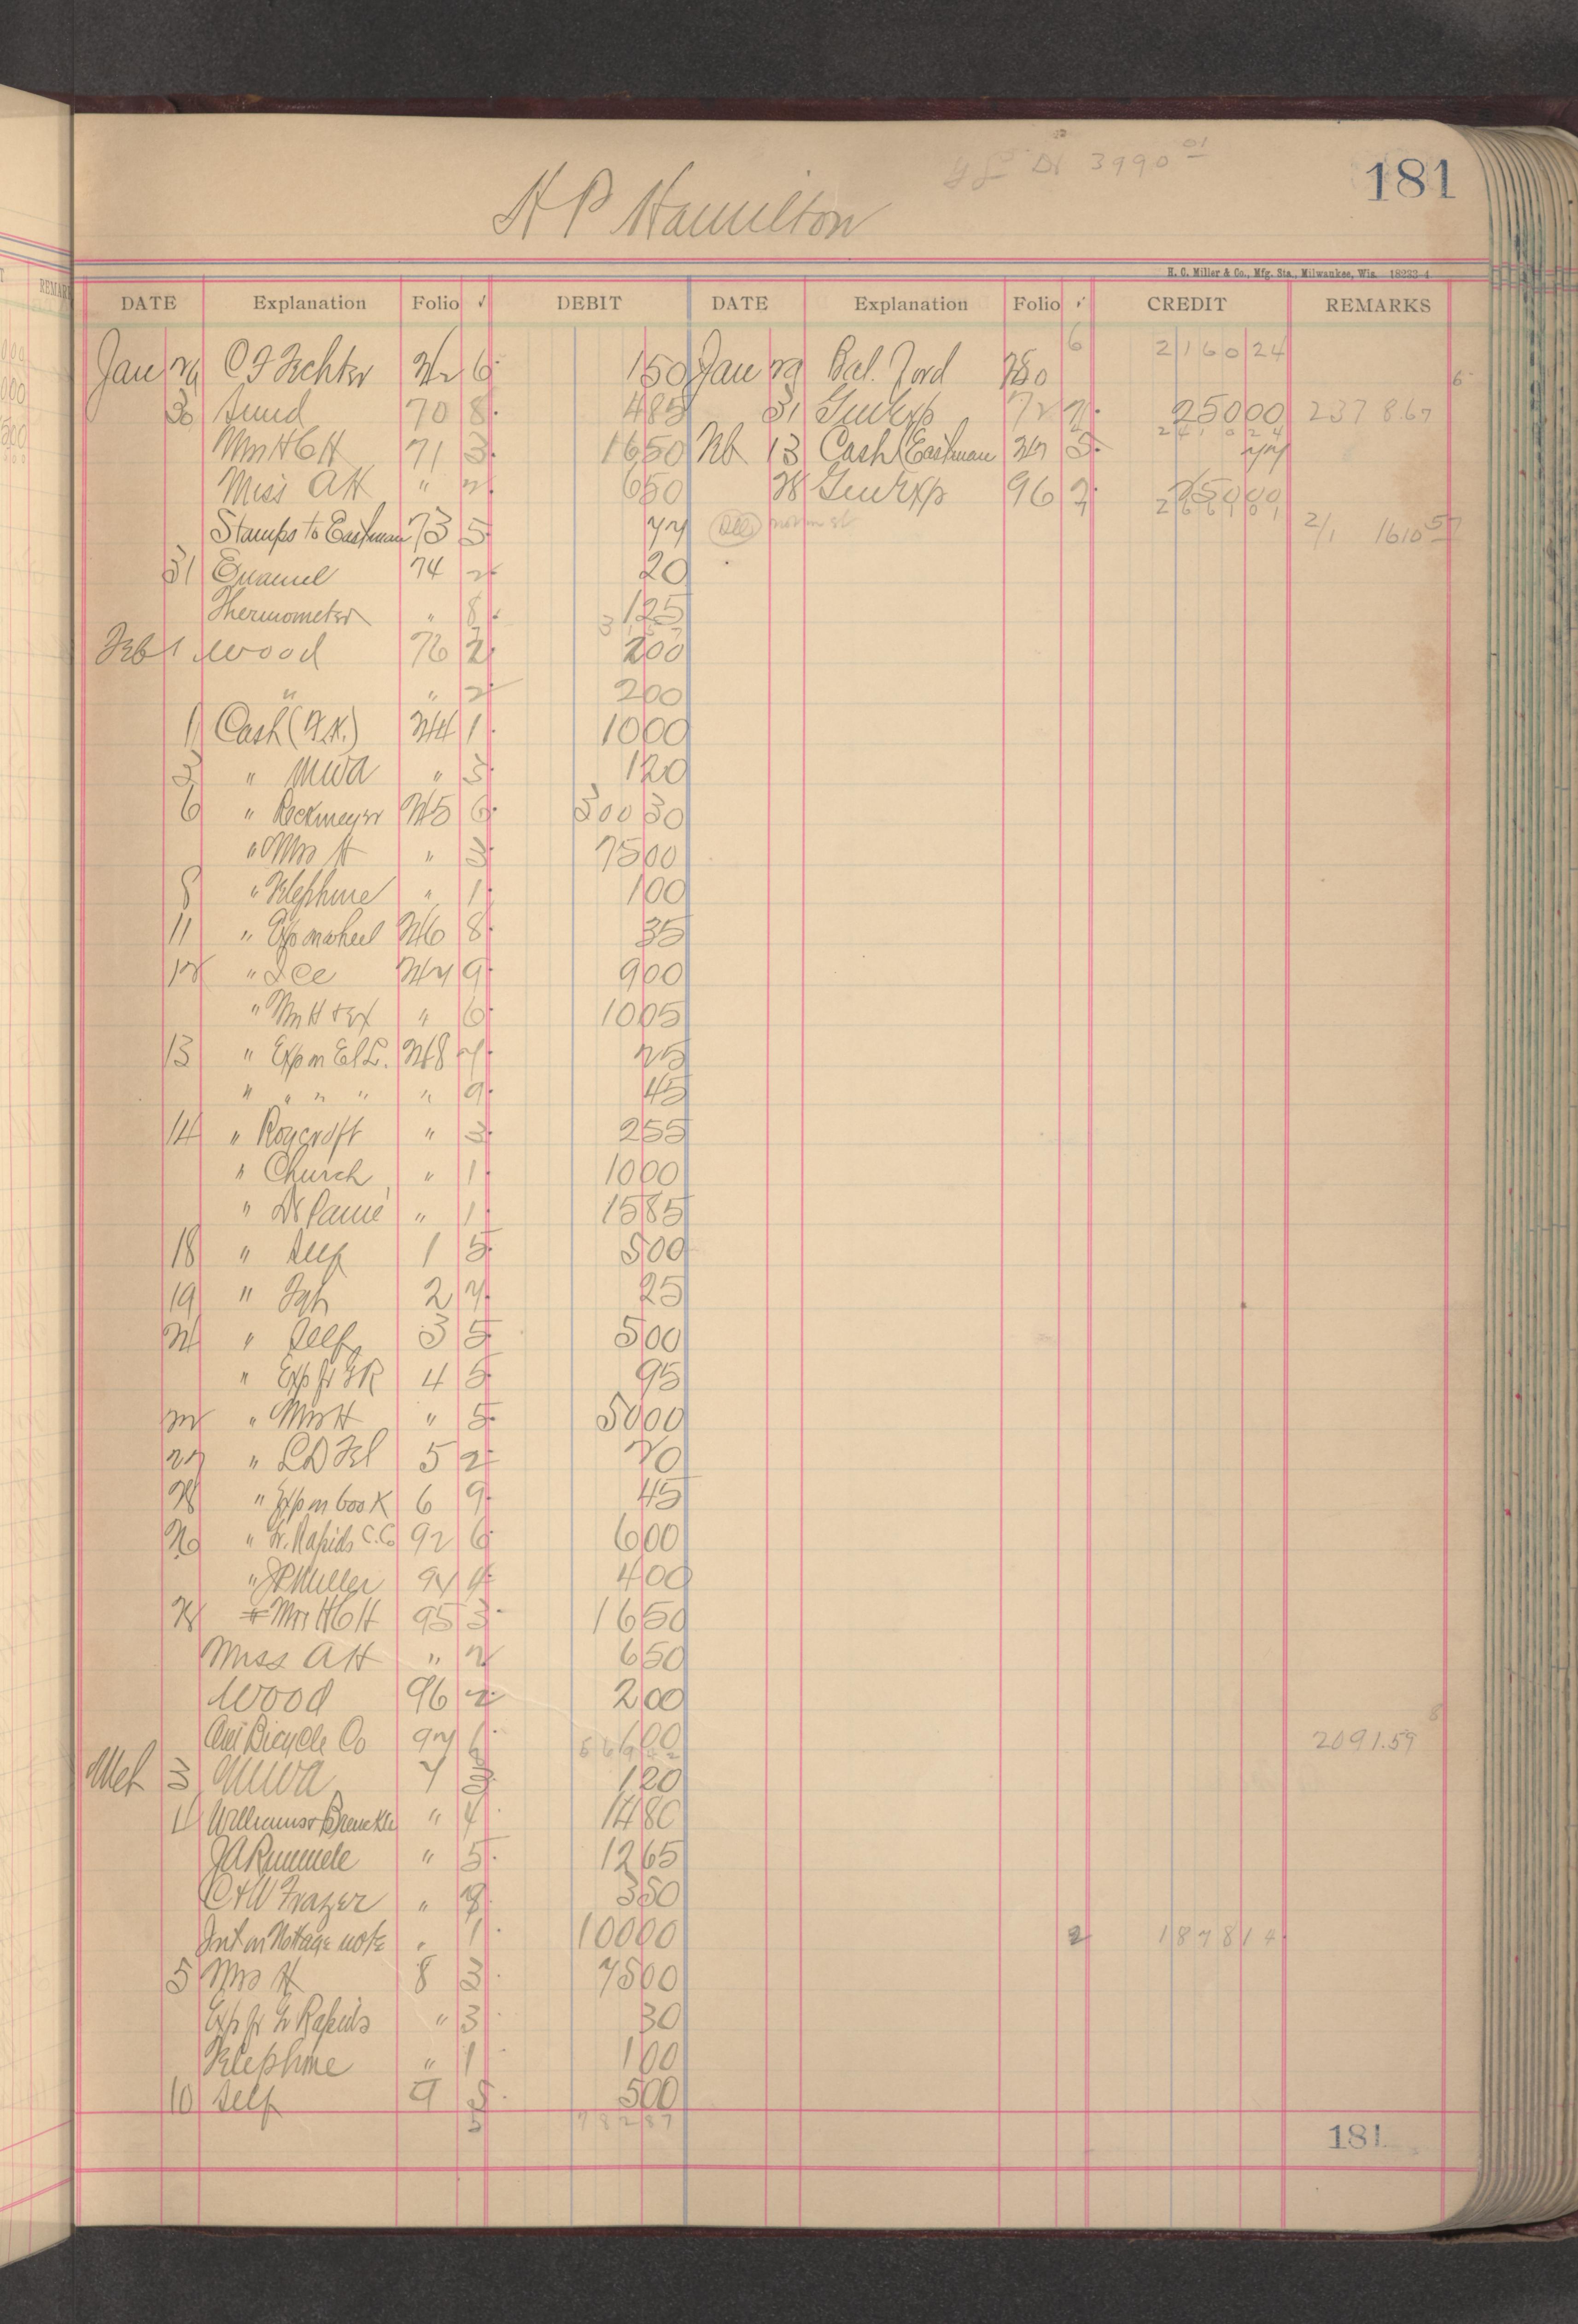 3990 01
181
H P Hamilton
H. C. Miller & Co., Mfg. Sta., Milwaukee, Wis. 18232-4
DATE Explanation Folio ✓ DEBIT DATE Explanation Folio ✓ CREDIT REMARKS
6 2160 24
Jan 29 6 1 50 Jan 29 Bal. Ford 280 6
30 Sund 70 8 4 85 31 Gen Exp 72 7 250 00 2378 67
Mrs H C H 71 3 16 50 Feb 13 Cash (Eastman 3 77
2410 24
Miss A H " 2 6 50 28 Gen Exp 96 7 250 00
2661 01
Stamps to Eastman 73 5 77 2/1 1610 57
31 Enamel 74 2 20
Thermometer " 8 1 25
Feb 1 Wood 76 2 2 00
" " 2 2 00
1 Cash (A.H.) 244 1 10 00
3 " MWA " 3 1 20
6 " Reckmeyer 245 6 300 30
" Mrs H " 3 75 00
8 " Telephone " 1 1 00
11 " Exp on wheel 246 8 35
12 " Ice 247 9 9 00
" 6 10 05
13 " Exp on El L. 248 7 25
" " " " " 9 45
14 " Roycroft " 3 2 55
" Church " 1 10 00
" Dr Paine " 1 15 85
18 " Self 1 5 5 00
19 " 2 7 25
21 " Self 3 5 5 00
" Exp fr GR 4 5 95
22 " Mrs H " 5 50 00
27 " L D Tel 5 2 70
28 " Exp on book 6 9 45
26 " Gr. Rapids C. Co 92 6 6 00
" J P Muller 94 4 4 00
28 Mrs H C H 95 3 16 50
Miss A H " 2 6 50
Wood 96 2 2 00
Am Bicycle Co 97 1 00 2091.59
Mch 3 MWA 7 3 1 20
4 Williams & Brenckle " 4 14 80
J A Rummele " 5 12 65
C & W Frazer " 8 3 50
Int on Nottage note " 1 100 00 2 1878 14
5 Mrs H 8 3 75 00
Exp fr Gr Rapids " 3 30
Telephone " 1 1 00
10 Self 9 5 5 00
5 782 87
181